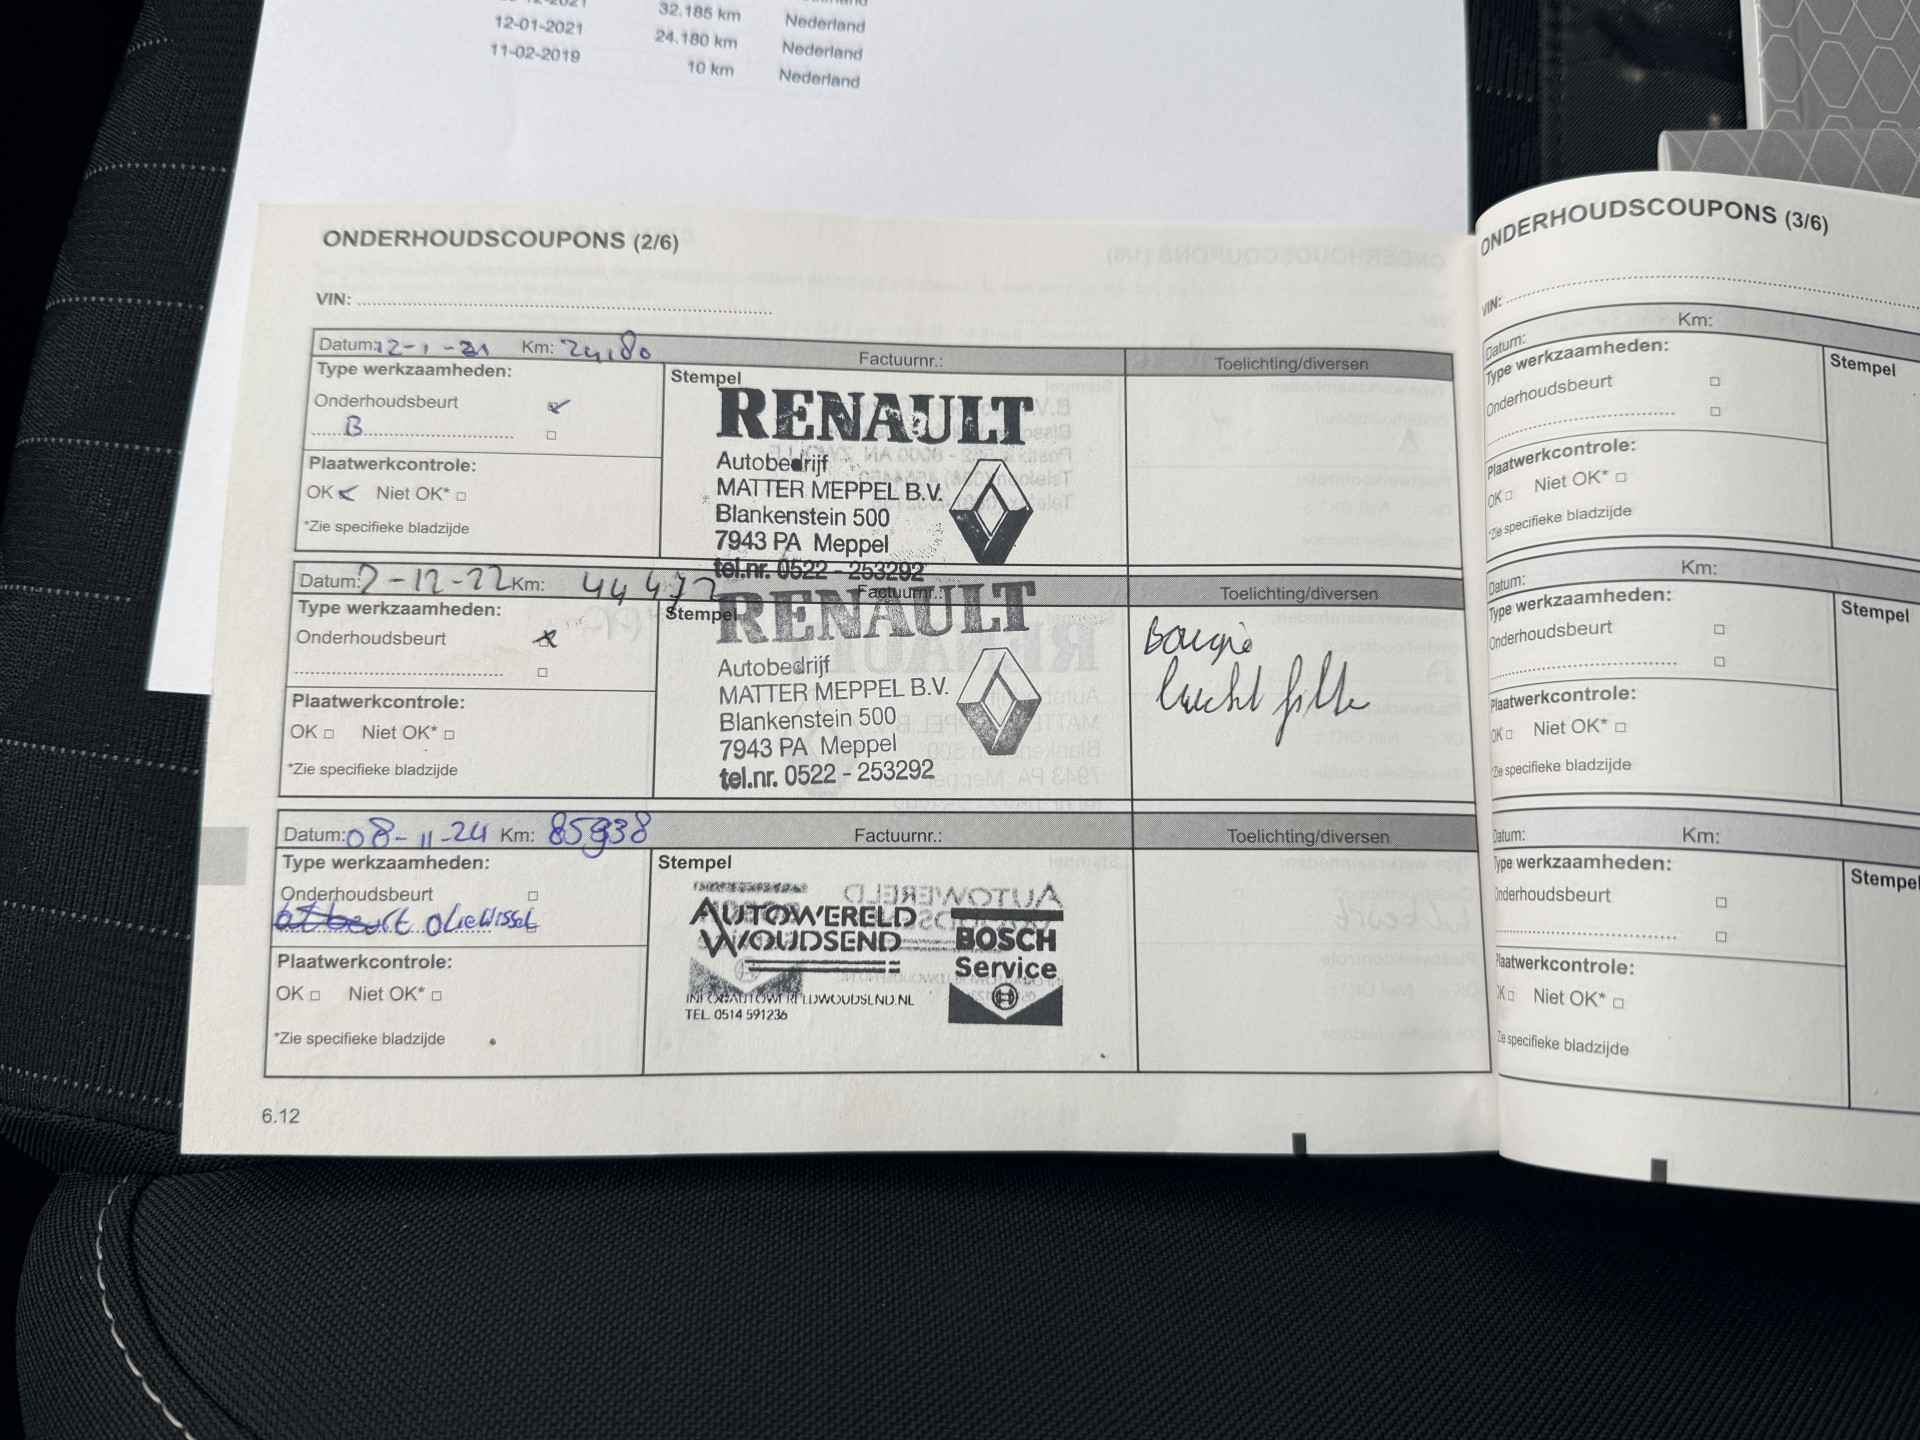 32.185 km Nederland
12-01-2021 24.180 km Nederland
11-02-2019 10 km Nederland
ONDERHOUDSCOUPONS (2/6)
VIN:
Datum: 12-1-21 Km: 24180 Factuurnr.: Toelichting/diversen
Type werkzaamheden: Stempel
Onderhoudsbeurt
B
Plaatwerkcontrole:
OK Niet OK*
*Zie specifieke bladzijde
RENAULT
Autobedrijf
MATTER MEPPEL B.V.
Blankenstein 500
7943 PA Meppel
tel.nr. 0522 - 253292
Datum: 7-12-22 Km: 44472 Factuurnr.: Toelichting/diversen
Type werkzaamheden: Stempel
Onderhoudsbeurt
Plaatwerkcontrole:
OK Niet OK*
*Zie specifieke bladzijde
RENAULT
Autobedrijf
MATTER MEPPEL B.V.
Blankenstein 500
7943 PA Meppel
tel.nr. 0522 - 253292
Bougie
lucht filte
Datum: 08-11-24 Km: 85938 Factuurnr.: Toelichting/diversen
Type werkzaamheden: Stempel
Onderhoudsbeurt
oliewissel
Plaatwerkcontrole:
OK Niet OK*
*Zie specifieke bladzijde
AUTOWERELD
WOUDSEND
INFO@AUTOWERELDWOUDSEND.NL
TEL. 0514 591236
BOSCH
Service
6.12
ONDERHOUDSCOUPONS (3/6)
VIN:
Datum: Km:
Type werkzaamheden: Stempel
Onderhoudsbeurt
Plaatwerkcontrole:
OK Niet OK*
*Zie specifieke bladzijde
Datum: Km:
Type werkzaamheden: Stempel
Onderhoudsbeurt
Plaatwerkcontrole:
OK Niet OK*
*Zie specifieke bladzijde
Datum: Km:
Type werkzaamheden: Stempel
Onderhoudsbeurt
Plaatwerkcontrole:
OK Niet OK*
*Zie specifieke bladzijde